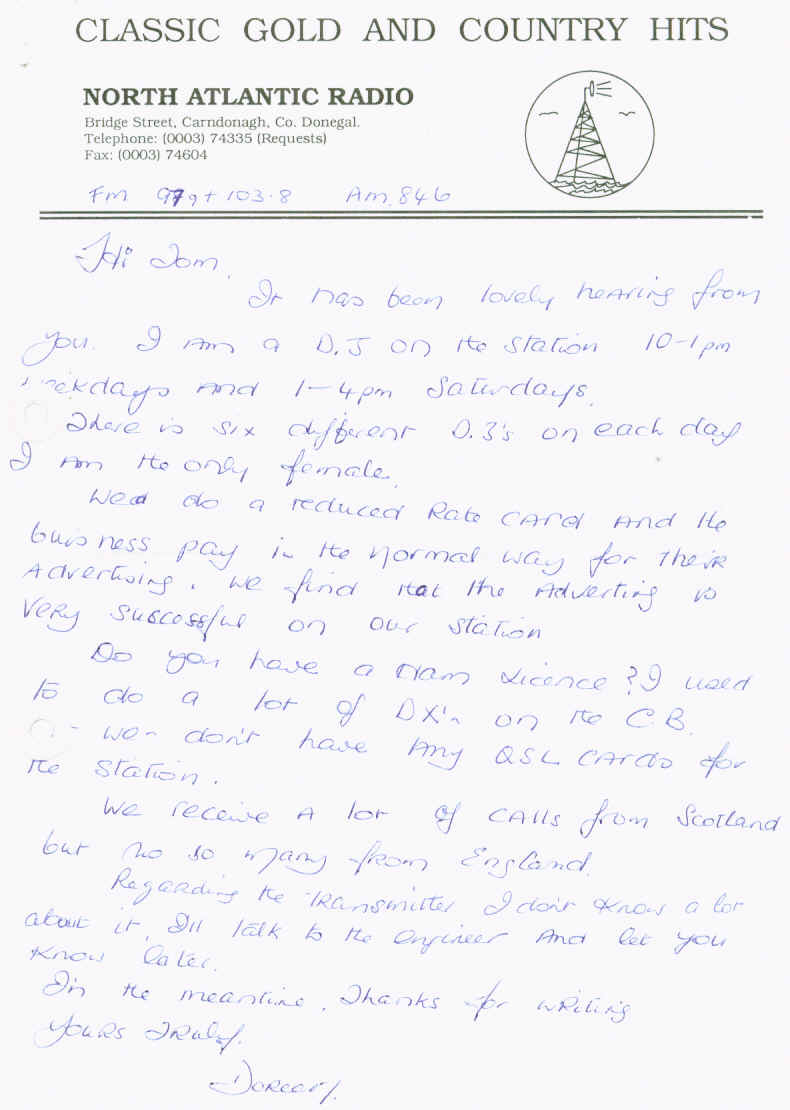 CLASSIC GOLD AND COUNTRY HITS
NORTH ATLANTIC RADIO
Bridge Street, Carndonagh, Co. Donegal.
Telephone: (0003) 74335 (Requests)
Fax: (0003) 74604
Fm 979 + 103.8 Am 846
Hi Tom.
It has been lovely hearing from
you. I Am a D.J on the Station 10-1pm
weekdays And 1-4pm Saturdays.
There is six different D.J's on each day
I Am the only female.
We do a reduced Rate CARd And the
buisness pay in the normal way for their
Advertising. We find that the Adverting is
Very Successful on our station
Do you have a Ham Licence? I used
to do a lot of DX'n on the C.B.
- We don't have Any QSL CARds for
the Station.
We receive A lot of CAlls from Scotland
but no so many from England.
Regarding the Transmitter I don't Know a lot
about it, I'll talk to the Engineer And let you
Know later.
In the meantime, Thanks for writing
Yours Truly.